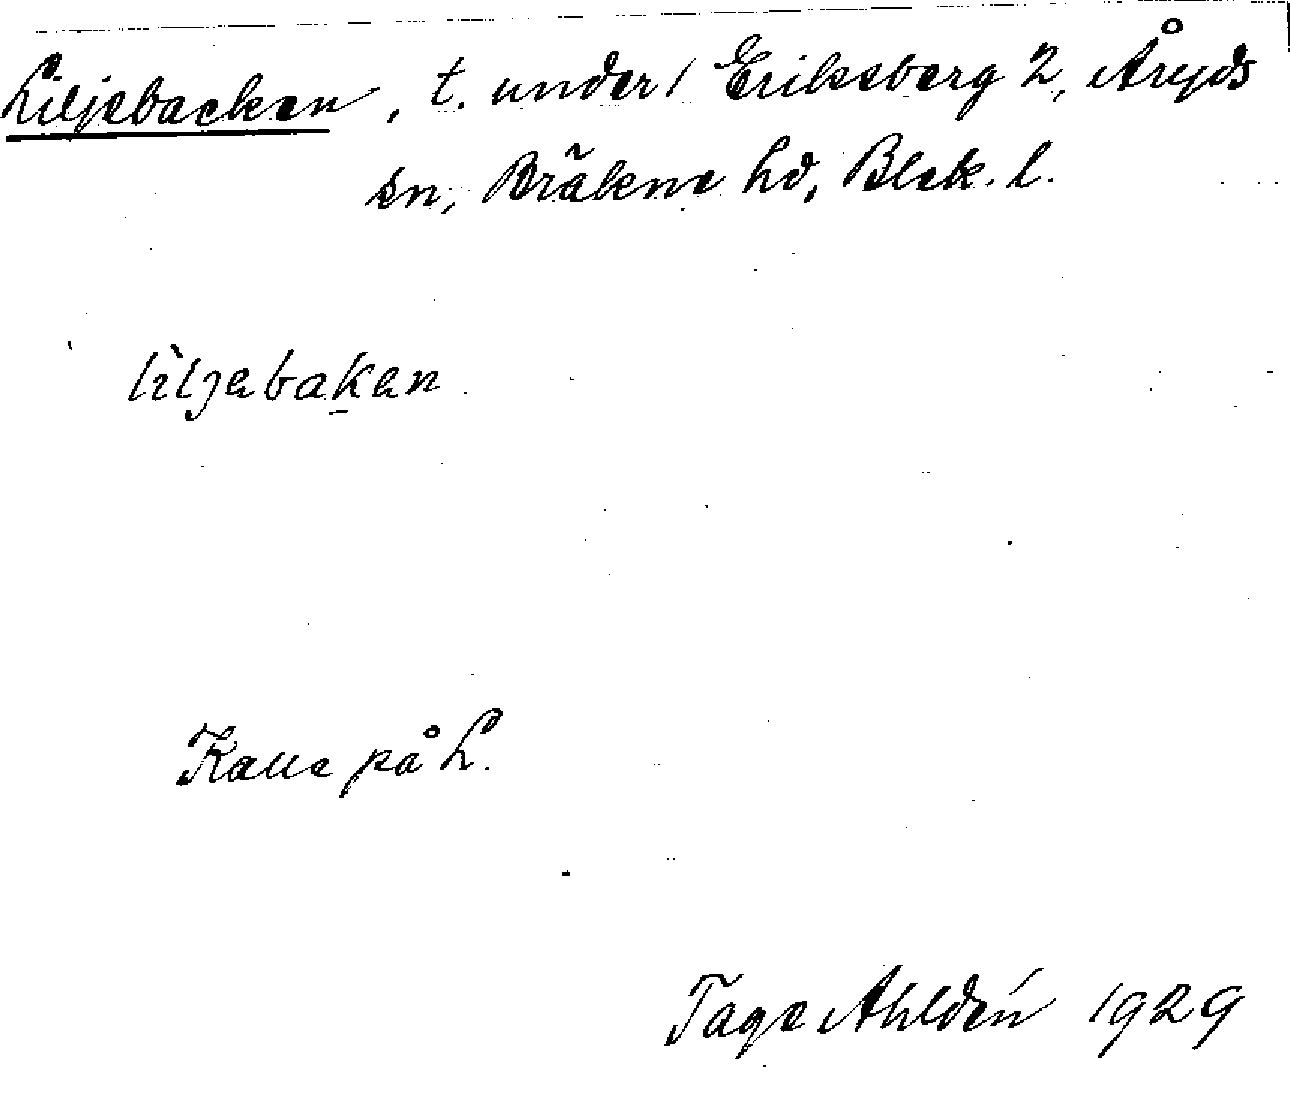 Liljebacken, t. under 1 Eriksberg 2, Åryds
sn, Bräkne hd, Blek. l.
lìljebak̠en
Kalle på L.
Tage Ahldén 1929